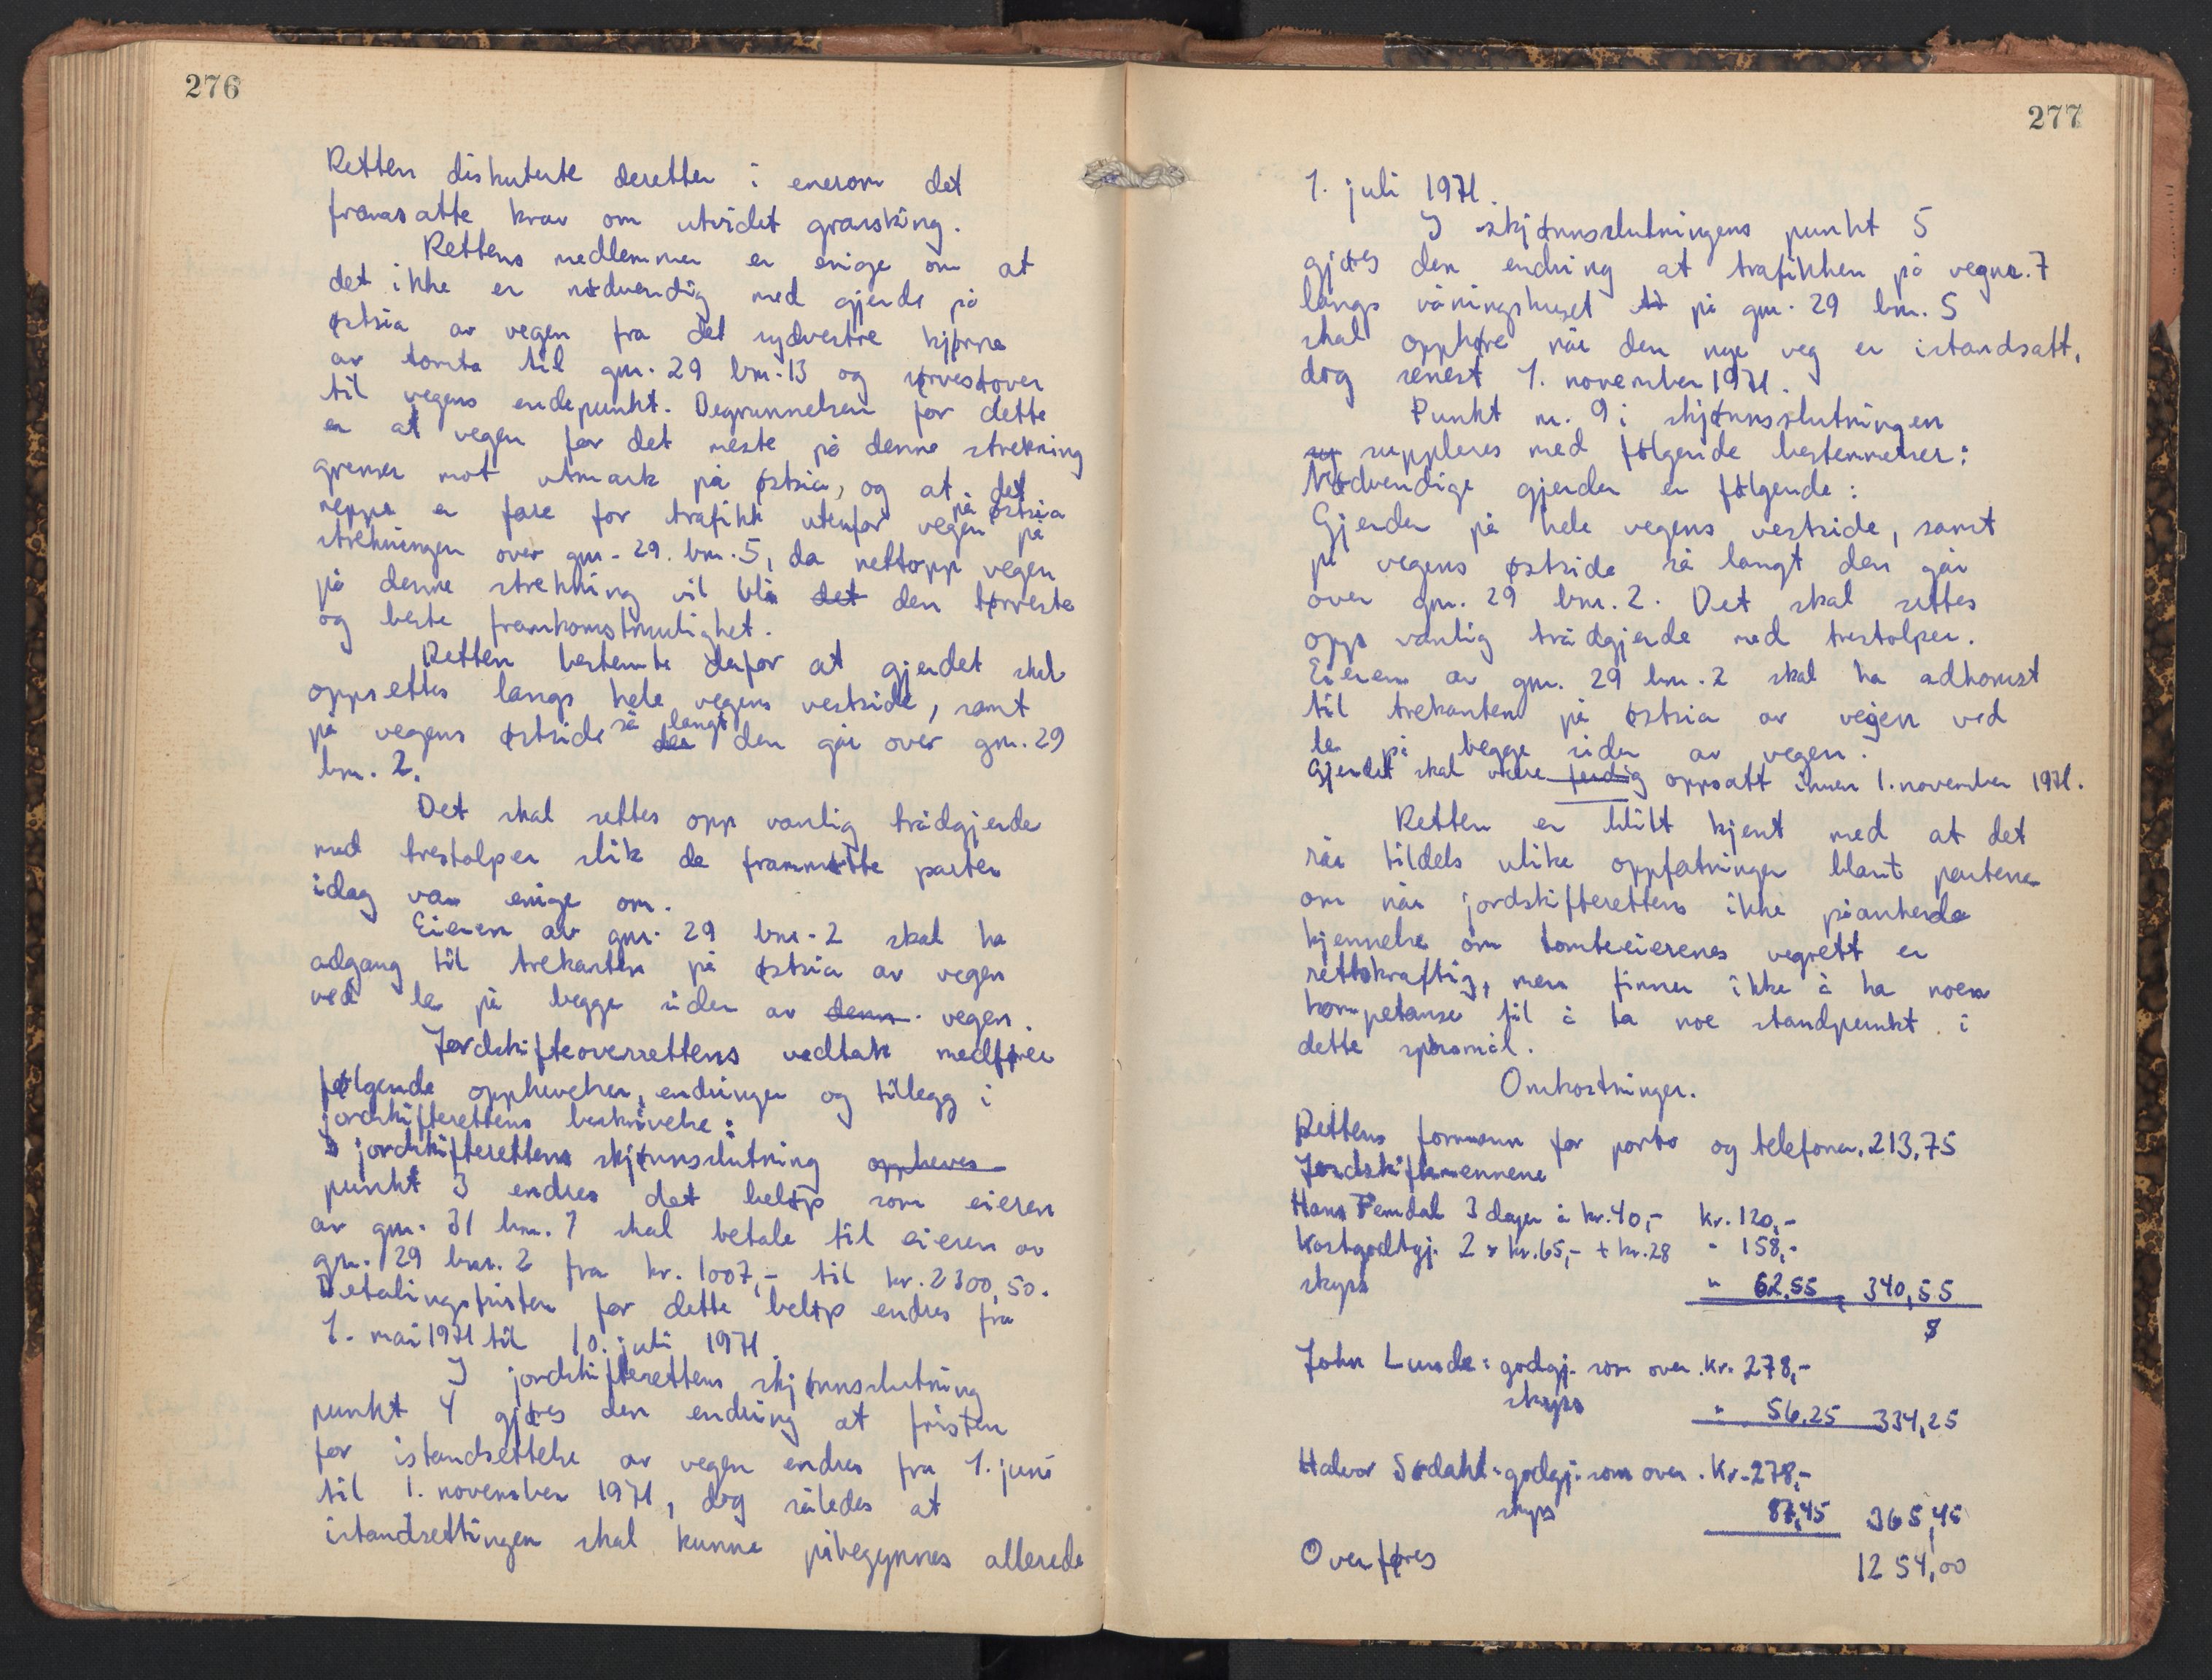 276
Retten diskuterte deretter i enerom det
framsatte krav om utvidet gransking.
Rettens medlemmer er enige om at
det ikke er nødvendig med gjerde på
østsia av vegen fra det sydvestre hjørne
av tomta til gnr. 29 bnr. 13 og sørvestover
til vegens endepunkt. Begrunnelsen for dette
er at vegen for det meste på denne strekning
grenser mot utmark på østsia, og at det
neppe er fare for trafikk utenfor vegen på østsia på
strekningen over gnr. 29. bnr. 5, da nettopp vegen
på denne strekning vil bli det den tørreste
og beste framkomstmulighet.
Retten bestemte derfor at gjerdet skal
oppsettes langs hele vegens vestside, samt
på vegens østside så langt den den går over gnr. 29
bnr. 2.
Det skal settes opp vanlig trådgjerde
med trestolper slik de frammøtte parter
idag var enige om.
Eieren av gnr. 29 bnr. 2 skal ha
adgang til trekanten på østsia av vegen
ved le på begge sider av denn vegen.
Jordskifteoverrettens vedtak medfører
følgende opphevelser, endringer og tillegg i
jordskifterettens beskrivelse:
I jordskifterettens skjønnsslutning oppheves
punkt 3 endres det beløp som eieren
av gnr. 31 bnr. 7 skal betale til eieren av
gnr. 29 bnr. 2 fra kr. 1007,- til kr. 2300,50.
Betalingsfristen for dette beløp endres fra
1. mai 1971 til 10. juli 1971.
I jordskifterettens skjønnsslutning
punkt 4 gjøres den endring at fristen
for istandsettelse av vegen endres fra 1. juni
til 1. november 1971, dog således at
istandsettingen skal kunne påbegynnes allerede
277
1. juli 1971.
I skjønnsslutningens punkt 5
gjøres den endring at trafikken på vegnr. 7
langs våningshuset til på gnr. 29 bnr. 5
skal opphøre når den nye veg er istandsatt,
dog senest 1. november 1971.
Punkt nr. 9 i skjønnsslutningen
sup suppleres med følgende bestemmelser:
Nødvendige gjerder er følgende:
Gjerder på hele vegens vestside, samt
på vegens østside så langt den går
over gnr. 29 bnr. 2. Det skal settes
opp vanlig trådgjerde med trestolper.
Eieren av gnr. 29 bnr. 2 skal ha adkomst
til trekanten på østsia av vegen ved
le på begge sider av vegen.
Gjerdet skal være ferdig oppsatt innen 1. november 1971.
Retten er blitt kjent med at det
rår tildels ulike oppfatninger blant partene
om når jordskifterettens ikke påankede
kjennelse om tomteeierenes vegrett er
rettskraftig, men finner ikke å ha noen
kompetanse til å ta noe standpunkt i
dette spørsmål.
Omkostninger.
Rettens formann for porto og telefoner. 213,75
Jordskiftemennene
Hans Femdal 3 dager à kr. 40,- kr. 120,-
Kostgodtgj. 2 x kr. 65,- + kr. 28 " 158,-
skyss " 62,55 340,55
8
John Lunde: godgj. som over. kr. 278,-
skyss " 56,25 334,25
Halvor Sødahl: godgj. som over. Kr. 278,-
skyss 87,45 365,45
Overføres 1254,00